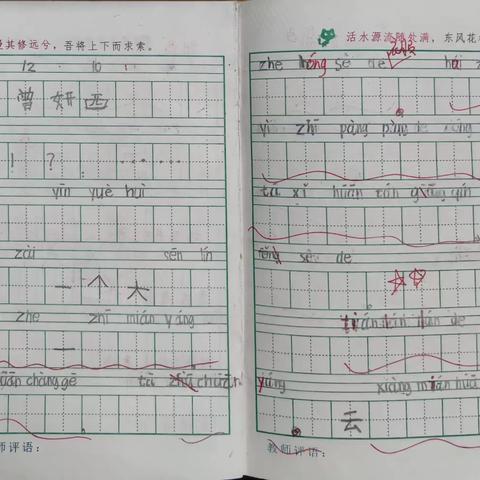 其修远兮，吾将上下而求索。
12 10
曾妍
！ ？ ：……
yīn yuè huì
zài sēn lín
一个大
zhe zhī mián yáng
一
chàng gē tā chuān
师评语：
活水源流随处满，东风花
zhe hóng sè de
yì zhī pàng pàng de
tā xǐ huān tán gāng qín
sè de
tán tán de
yáng xiàng mián huā
去
教师评语：